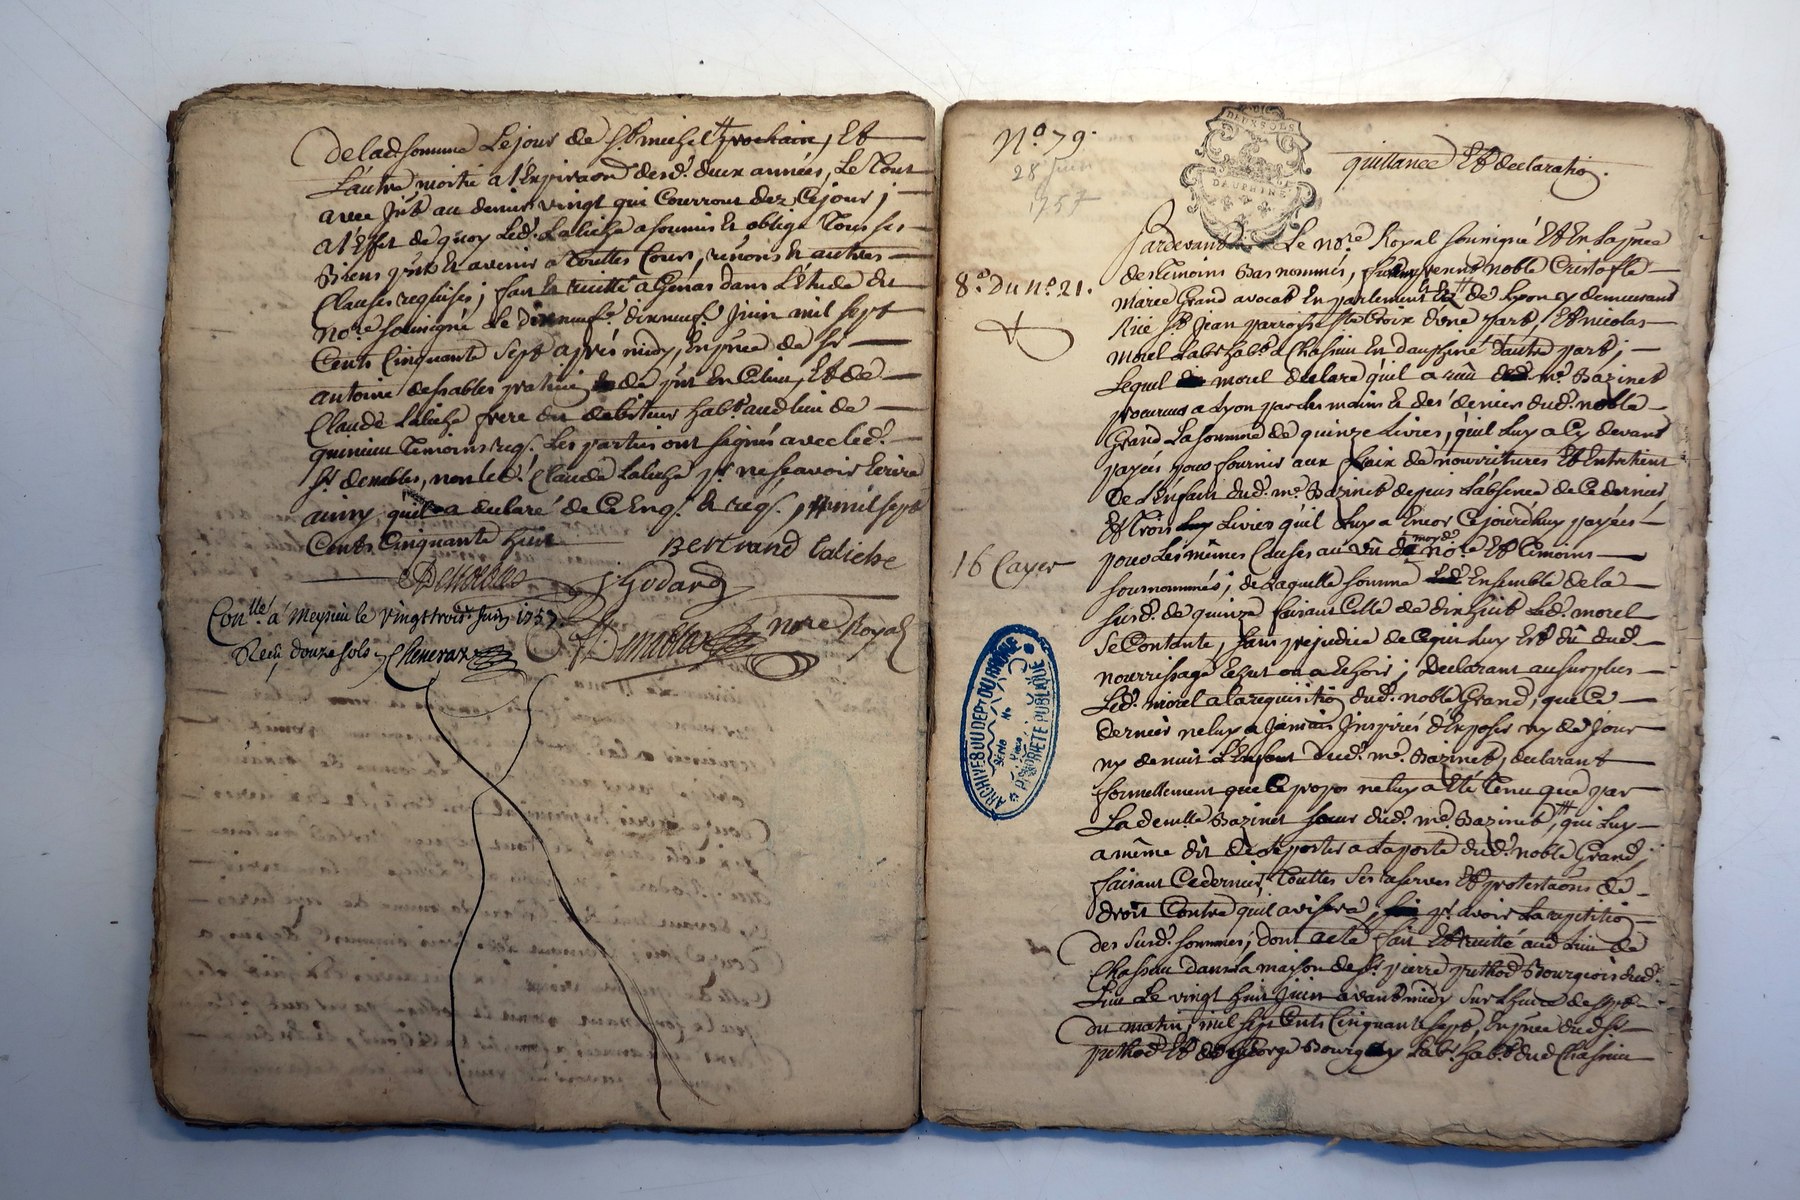 delad. somme Le jour de St. michel prochain, Et
L'autre moitié a l'Expiraon desd. deux années, Le Tout
avec Jnt. au denier vingt qui Courront dez Cejour;
a l'Effet de quoy Led. Laliche a soumis Et obligé Tous ses
Biens pnts Et avenir a Touttes Cours, Et autres
Clauses requises; fait Et recitté a Génas dans L'étude du
nore. soussigné Le dixneuf Juin mil sept
Cents Cinquante Sept après midy, En pnce de Sr.
antoine desnables praticien de Et de
Claude Laliche frere du debiteur habt. aud lieu de
Temoins req. Les parties ont signés avec led.
Sr. desnables, non led. Claude Laliche pr. ne sçavoir Ecrire
ainsy qu'il a declaré de Ce Enq. Et req. mil sept
Cents Cinquante
Bertrand Laliche
J. Godard
nore Royal
Conllé. á Meyzieu le Vingttrois Juin 1757.
Reçu douze sols. Cheneraz
No. 79.
28 Juin
1757
DEUX SOLS
DAUPHINE
quittance Et declaratio.
Pardevant Le nore. Royal soussigné Et En la pnce
des Temoins Bas nommés, furent présents noble Cristofle
Marie Grand avocat En parlement Et de Lyon y demeurant
Rüe St. Jean parroisse Ste Croix d'une part, Et nicolas
8.a Du no. 21.
Morel Labr. habt. a Chassieu En dauphiné d'autre part;
Lequel morel declare qu'il a reçu de me. Bazinet
procureur a Lyon par les mains Et des deniers dud. noble
Grand La somme de quinze Livres, qu'il Luy a Cy devant
payées pour fournir aux fraix de nourritures Et Entretient
De L'Enfant dud. me. Bazinet depuis L'absence de Ce dernier,
Et Trois Livres qu'il Luy a Encor Cejourd'huy payées
16 Cayer
pour Les mêmes Causes au vû de moyd. nore. Et Temoins
sousnommés; de Laquelle somme Ensemble de la
susd. de quinze faisant Celle de dixhuit Led. morel
se Contente, sans prejudice de Ce qui Luy Est dû dud.
nourrissage Echut ou a Echoir; Declarant au surplus
Led. morel a la requisitio dud. noble Grand, que Ce
dernier ne luy a Jamais Inspirés d'Exposer ny de Jour
ny de nuit L'Enfant dud. me. Bazinet, declarant
formellement que Ce propos ne luy a Eté Tenu que par
La demlle. Bazinet soeur dud. me. Bazinet, qui Luy
a même dit de le porter a La porte dud. noble Grand,
faisant Ce dernier Touttes ses reserves Et protestaons de
droit Contre qui il avisera, pr. avoir La repetitio
des susd. sommes; dont acte fait Et recitté aud. Lieu de
Chassieu dans la maison de Sr. pierre prthod Bourgeois dud.
Lieu Le vingt huit Juin avant midy Sur L'heure de sept
du matin, mil sept Cents Cinquante sept, En pnce dud. Sr.
prthod Et de George Bourgey Labr. habt. dud. Chassieu
ARCHIVES DU DEPT DU RHONE
PROPRIETE PUBLIQUE